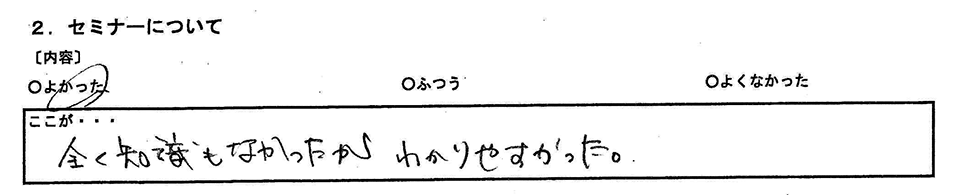 2．セミナーについて
〔内容〕
○よかった ○ふつう ○よくなかった
ここが・・・
全く知識もなかったから わかりやすかった。